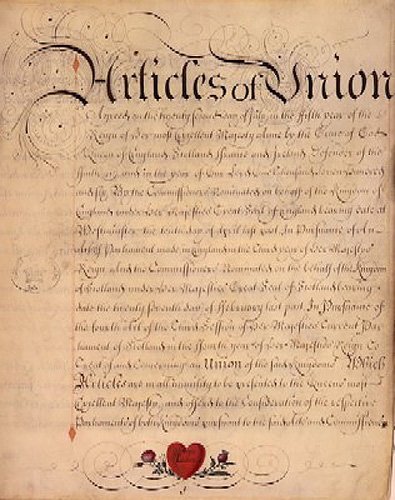 Articles of Union
Agreed on the twenty Second day of July, in the fifth year of the
Reign of Her most Excellent Majesty Anne by the Grace of God
Queen of England, Scotland France and Ireland, Defender of the
Faith &c. and in the year of our Lord One thousand Seven hundred
and six, By the Commissioners Nominated on behalf of the Kingdom of
England under Her Majesties Great Seal of England bearing date at
Westminster the tenth day of April last past, In Pursuance of an
Act of Parliament made in England in the third year of Her Majesties
Reign, and the Commissioners Nominated on the behalf of the Kingdom
of Scotland under Her Majesties Great Seal of Scotland bearing
date the twenty seventh day of February last past, In Pursuance of
the fourth Act of the third Session of Her Majesties Current Par
liament of Scotland in the fourth year of Her Majesties Reign, to
Treat of and Concerning an Union of the said Kingdoms Which
Articles are in all humility to be presented to the Queens most
Excellent Majesty, and offered to the Consideration of the respective
Parliaments of both Kingdoms pursuant to the said Acts and Commissions